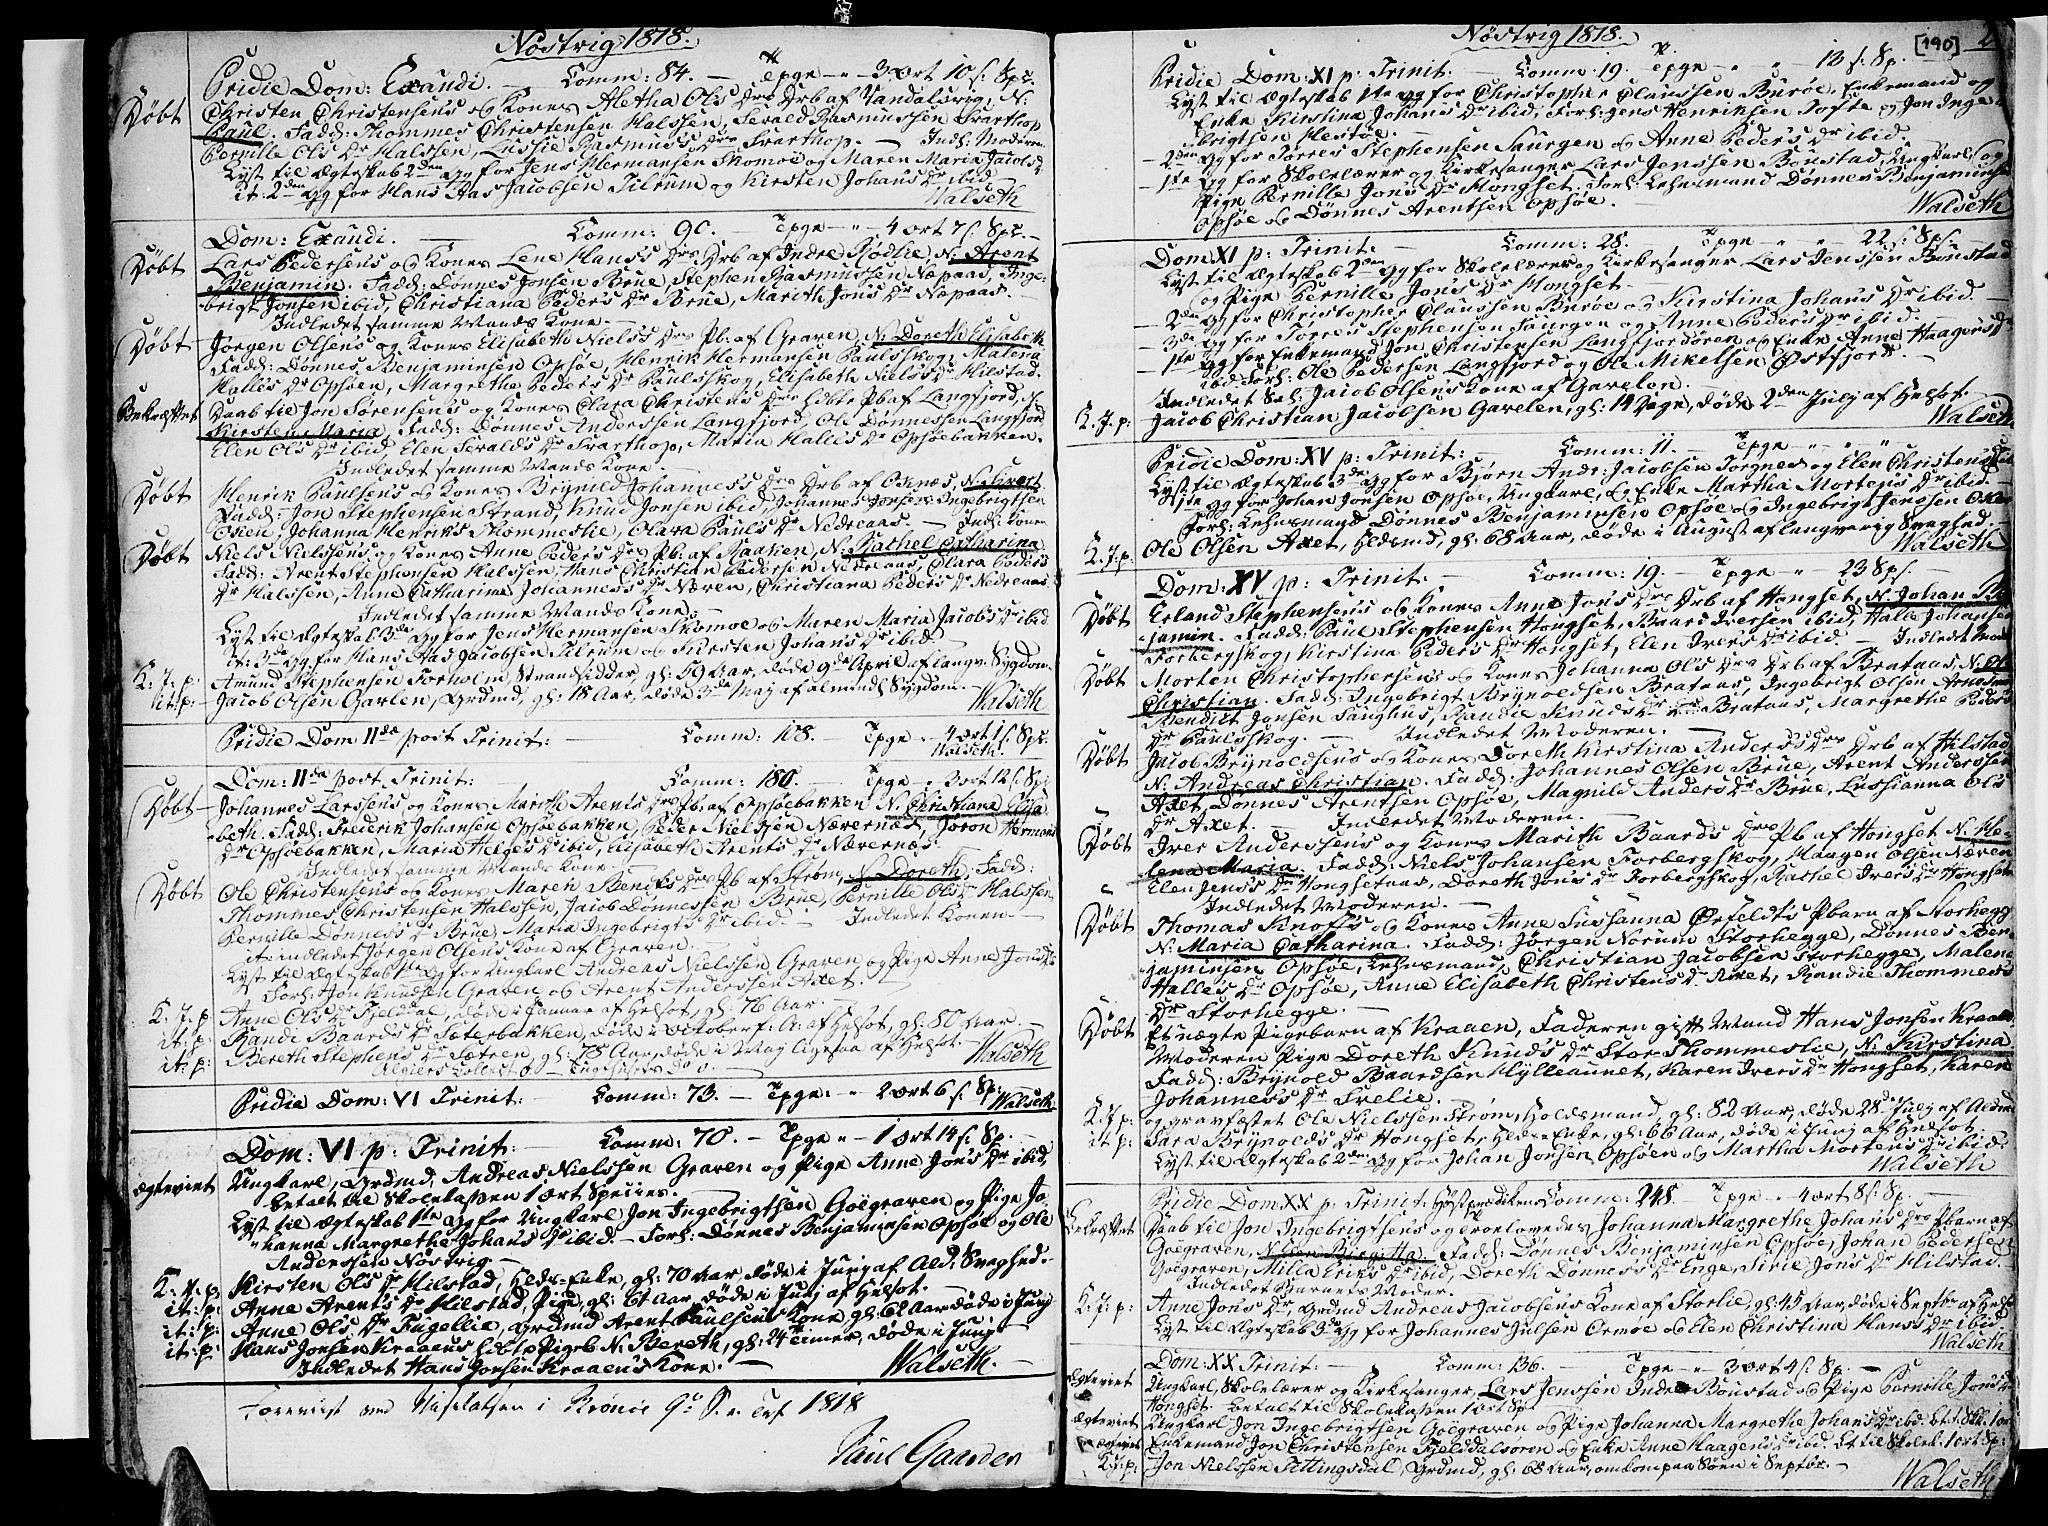 Nøstrig 1818.
Pridie Dom: Exaudi. — Comm: 84. — Tpge " 3 ort 10 s: Spc.
Døbt
Christen Christensens og Kones Aletha Ols Dr Drb af Vandalsvig, N:
Paul. Fadd: Thommes Christensen Halssen, Serald Rasmussen Svarthop
Pernille Ols Dr Halssen, Lussie Rasmus's Dr Svarthop. — Indl: Moderen
Lyst til Ægteskab 2den Gg for Jens Hermansen Skomoe og Maren Maria Jacobs Dr
it: 2den Gg for Hans Aas Jacobsen Tilrum og Kirsten Johans Dr ibid
Walseth
Dom: Exaudi. — Comm: 90. — Tpge " 4 ort 7 s: Spc.
Døbt
Lars Pedersens og Kones Lene Hans Drs Drb af Indre Rødlie, N: Arent
Benjamin. Fadd: Dønnes Jonsen Brue, Stephen Rasmussen Næpaas, Inge-
brigt Jonsen ibid, Christiana Peders Dr Brue, Marith Jons Dr Næpaas.
Indledet samme Mands Kone —
Døbt
Jørgen Olsens og Kones Elisabeth Niels's Drs Pb: af Graven, N: Doreth Elisabeth
Fadd: Dønnes Benjaminsen Opsøe, Henrik Hermansen Paulsskog, Malena
Halles Dr Opsøen, Margrethe Peders Dr Paulsskog, Elisabeth Niels's Dr Hilstad.
Bekræftet
Daab til Jon Sørensens og Kones Clara Christens Drs Pb af Langfjord, N:
Kirsten Maria, Fadd: Dønnes Anderssen Langfjord, Ole Dønnessen Langfjord
Elen Ols Dr ibid, Elen Seralds Dr Svarthop, Maria Halles Dr Opsøebakken.
Indledet samme Mands Kone —
Døbt
Henrik Paulsens og Kones Brynild Johannes's Drs Drb af Oxnæs, N: Sivert
Fadd: Jon Stephensen Strand, Knud Jonsen ibid, Johannes Jonsen Ingebrigtsen
Oxen, Johanna Henriks Thommeslie, Clara Pauls Dr Nedreaas. — Indl: Konen
Døbt
Niels Nielssens og Kones Anne Peders Drs Pb: af Raaken, N: Rachel Catharina
Fadd: Arent Stephensen Halssen, Hans Christian Pedersen Nedreaas, Clara Peders
Dr Halssen, Anne Catharina Johannes's Dr Næren, Christiana Peders Dr Nedreaas
Indledet samme Mands Kone —
Lyst til Ægteskab 3de Gg for Jens Hermansen Skomoe og Maren Maria Jacobs Dr ibid
it: 3de Gg for Hans Aas Jacobsen Tilrum og Kirsten Johans Dr ibid
K: J: p:
Amund Stephensen Sørholm, Strandsidder, gl: 59 Aar, døde 9de April af langv: Sygdom.
it: p:
Jacob Olsen Gavlen, Grdmd, gl: 18 Aar, døde 3de Maj af almindl Sygdom. — Walseth
Pridie Dom 11da post Trinit: — Comm: 108. — Tpge " 4 ort 1 s: Spc.
Walseth.
Dom: 11da post Trinit: Comm: 180. Tpge " 3 ort 12 s: Sp:
Døbt
Johannes Larssens og Kones Marith Arents Drs Pb: af Opsøebakken N: Christiana Elisa-
beth. Fadd: Frederik Johansen Opsøebakken, Peder Nielssen Nærernæs, Jøron Hermans
Dr Opsøebakken, Maria Helges Dr ibid, Elisabeth Arents Dr Nærernæs.
Indledet samme Mands Kone —
Døbt
Ole Christensens og Kones Maren Benths Drs Pb af Strøm, N: Doreth. Fadd:
Thommes Christensen Halssen, Jacob Dønnessen Brue, Pernille Ols Dr Halssen
Pernille Dønnes's Dr Brue, Maria Ingebrigts Dr ibid. — Indledet Konen —
it: indledet Jørgen Olsens Kone af Graven.
Lyst til Ægteskab 1ste Gg for Ungkarl Andreas Nielssen Graven og Pige Anne Jons Dr
Forl: Jon Knudsen Graven og Arent Anderssen Axet.
K: J: p:
Anne Ols Dr Fjeldal, døde i Januar af Helsot, gl: 76 Aar. —
it: p:
Randi Baards Dr Sæterbakken, døde i October f: A: af Helsot, gl: 80 Aar. —
it: p:
Bereth Stephens Dr Sætren, gl: 78 Aar, døde i Maj ligesaa af Helsot. — Walseth
Pridie Dom: VI Trinit: — Comm: 73. — Tpge: " 2 ort 6 s: Sp: Walseth.
Dom: VI p: Trinit: — Comm: 70. — Tpge " 1 ort 14 s: Sp.
Ægteviet
Ungkarl, Grdmd, Andreas Nielssen Graven og Pige Anne Jons Dr ibid,
betalt til Skolekassen 1 ort Species.
Lyst til Ægteskab 1ste Gg for Ungkarl Jon Ingebrigtsen Goëgraven og Pige Jo-
hanna Margrethe Johans Dr ibid. — Forl: Dønnes Benjaminsen Opsøe og Ole
Anderssen Nøstrig —
K: J: p:
Kirsten Ols Dr Hilstad, Hldr-Enke, gl: 70 Aar, døde i Junj af Ald: Svaghed.
it: p:
Anne Arents Dr Hilstad, Pige, gl: 61 Aar, døde i Junj af Helsot.
it: p:
Anne Ols Dr Fugellie, Grdmd Arent Paulsens Kone, gl: 62 Aar, døde i Junj
it: p:
Hans Jonsen Kraaens Pigeb: N: Bereth, gl: 24 Timer, døde i Junj
Indledet Hans Jonsen Kraaens Kone. — Walseth.
Foreviist ved Visitatsen i 1818
Paul Gaarder
Nøstrig 1818.
[190]
Pridie Dom: XI p: Trinit: — Comm: 19. Tpge " " 13 s: Sp.
Lyst til Ægteskab 1ste Gg for Christopher Clausen Burøe, Enkemand og
Enke Kirstina Johans Dr ibid, Forl: Jens Henriksen Tofte og Jon Inge-
brigtsen Hestøe.
— 2den Gg for Torres Stephensen Saurgen og Anne Peders Dr ibid.
— 1ste Gg for Skolelærer og Kirkesanger Lars Jenssen Boustad, Ungkarl og
Pige Pernille Jons Dr Hongset. Forl: Lehnsmand Dønnes Benjaminsen
Opsøe og Dønnes Arentsen Opsøe.
Walseth
Dom XI p: Trinit: — Comm: 28. Tpge " " 22 s: Sp.
Lyst til Ægteskab 2den Gg for Skolelærer og Kirkesanger Lars Jenssen Boustad
og Pige Pernille Jons Dr Hongset. —
— 2den Gg for Christopher Claussen Burøe og Kirstina Johans Dr ibid. —
— 3de Gg for Torres Stephensen Saurgen og Anne Peders Dr ibid. —
— 1ste Gg for Enkemand Jon Christensen Langfjordøren og Enke Anne Haagens Dr
ibid Forl: Ole Pedersen Langfjord og Ole Mikelsen Østfjord. —
Indledet Sal: Jacob Olsens Kone af Gavelen.
K: J: p:
Jacob Christian Jacobsen Gavelen, gl: 14 Dage, døde 2den Julj af Helsot.
Walseth
Pridie Dom: XV p: Trinit: — Comm: 11. Tpge " " "
Lyst til Ægteskab 3de Gg for Bjørn Andr: Jacobsen Torgnes og Elen Christens
1ste Gg for Johan Jonsen Opsøe, Ungkarl, og Enke Martha Mortens Dr ibid. —
Forl: Lehnsmand Dønnes Benjaminsen Opsøe og Ingebrigt Jenssen Oxen
K: J: p:
Ole Olsen Axet, Hldsmd, gl: 68 Aar, døde i August af langvarig Svaghed. —
Walseth
Dom: XV p: Trinit: — Comm: 19. Tpge " 23 Sps. —
Døbt
Erland Stephensens og Kones Anne Jons Drs Drb af Hongset, N: Johan Ben-
jamin. Fadd: Paul Stephensen Hongset, Baard Iversen ibid, Halle Johansen
Forbergskog, Kirstina Peders Dr Hongset, Elen Ivers Dr ibid — Indledet Moderen
Døbt
Morten Christophersens og Kones Johanna Ols Drs Drb af Brataas, N: Ole
Christian. Fadd: Ingebrigt Brynoldsen Brataas, Ingebrigt Olsen
Bendict Jonsen Sanghus, Randie Knuds Dr Brataas, Margrethe Peders
Dr Paulsskog. — Indledet Moderen. —
Døbt
Jacob Brynoldsens og Kones Doreth Kirstina Anders's Drs Drb af Hilstad
N: Andreas Christian. Fadd: Johannes Olsen Brue, Arent Anderssen
Axet, Dønnes Arentsen Opsøe, Magnild Anders Dr Brue, Lussianna Ols
Dr Axet. — Indledet Moderen. —
Døbt
Iver Anderssens og Kones Marith Baards Drs Pb af Hongset N: He-
lena Maria. Fadd: Niels Johansen Forbergskog, Haagen Olsen Næren
Elen Jens's Dr Hongsetaas, Doreth Jons Dr Forbergskog, Rachel Ivers Dr Hongset
Indledet Moderen. —
Døbt
Thomas Knoffs og Kones Anne Susanna Ørfeldts Pbarn af Storhegge
N: Maria Catharina. Fadd: Jørgen Norum Storhegge, Dønnes Ben-
jaminsen Opsøe, Lehnsmand, Christian Jacobsen Storhegge, Malena
Halles Dr Opsøe, Anne Elisabeth Christens Dr Axet, Randie Thommes's
Dr Storhegge. —
Døbt
Et uægte Pigebarn af Kraaen, Faderen gift Mand Hans Jonsen Kraaen
Moderen Pige Doreth Knuds Dr Stor-Thommeslie, N: Kirstina.
Fadd: Brynold Baardsen Hylleaunet, Karen Ivers Dr Hongset, Karen
Johannes's Dr Trelie.
K: J: p:
og gravfæstet Ole Nielssen Strøm, Holdsmand, gl: 82 Aar, døde 28de Julj af Alderd:
it: p:
Sara Brynolds Dr Hongset, Hldr-Enke, gl: 66 Aar, døde i Junj af Helsot.
Lyst til Ægteskab 2den Gg for Johan Jonsen Opsøen og Martha Mortens Dr ibid.
Walseth
Pridie Dom XX p: Trinit: Høstprædiken Comme: 248. Tpge " 4 ort 8 s: Sp. —
Bekræftet
Daab til Jon Ingebrigtsens og trolovedes Johanna Margrethe Johans Drs Pbarn af
Goëgraven, N: Elen Birgitta. Fadd: Dønnes Benjaminsen Opsøe, Johan Pedersen
Goëgraven, Milla Eriks Dr ibid, Doreth Dønnes's Dr Enge, Sirie Jons Dr Hilstad.
Indledet Barnets Moder. —
K: J: p:
Anne Jons Dr, Grdmd Andreas Jacobsens Kone af Storlie, gl: 45 Aar, døde i Septbr af Helsot
Lyst til Ægteskab 3de Gg for Johannes Julsen Ormøe og Elen Christina Hans Dr ibid
Walseth
Dom: XX Trinit: — Comm: 136. — Tpge " 3 ort 4 s: Sp. —
Ægteviet
Ungkarl, Skolelærer og Kirkesanger, Lars Jenssen Indre Boustad og Pige Pernille Jons Dr
Hongset. Betalt til Skolekassen 1 ort Sp.
Ægteviet
Ungkarl Jon Ingebrigtsen Goëgraven og Pige Johanna Margrethe Johans Dr ibd. bt. t. Skk. 1 ort
Ægteviet
Enkemand Jon Christensen Fjelddalsøren og Enke Anne Haagens Dr ibid. bt til Skolek: 1 ort Sp:
K: J: p:
Jon Nielssen Fittingsdal, Grdmd, gl: 68 Aar, omkom paa Søen i Septbr. —
Walseth